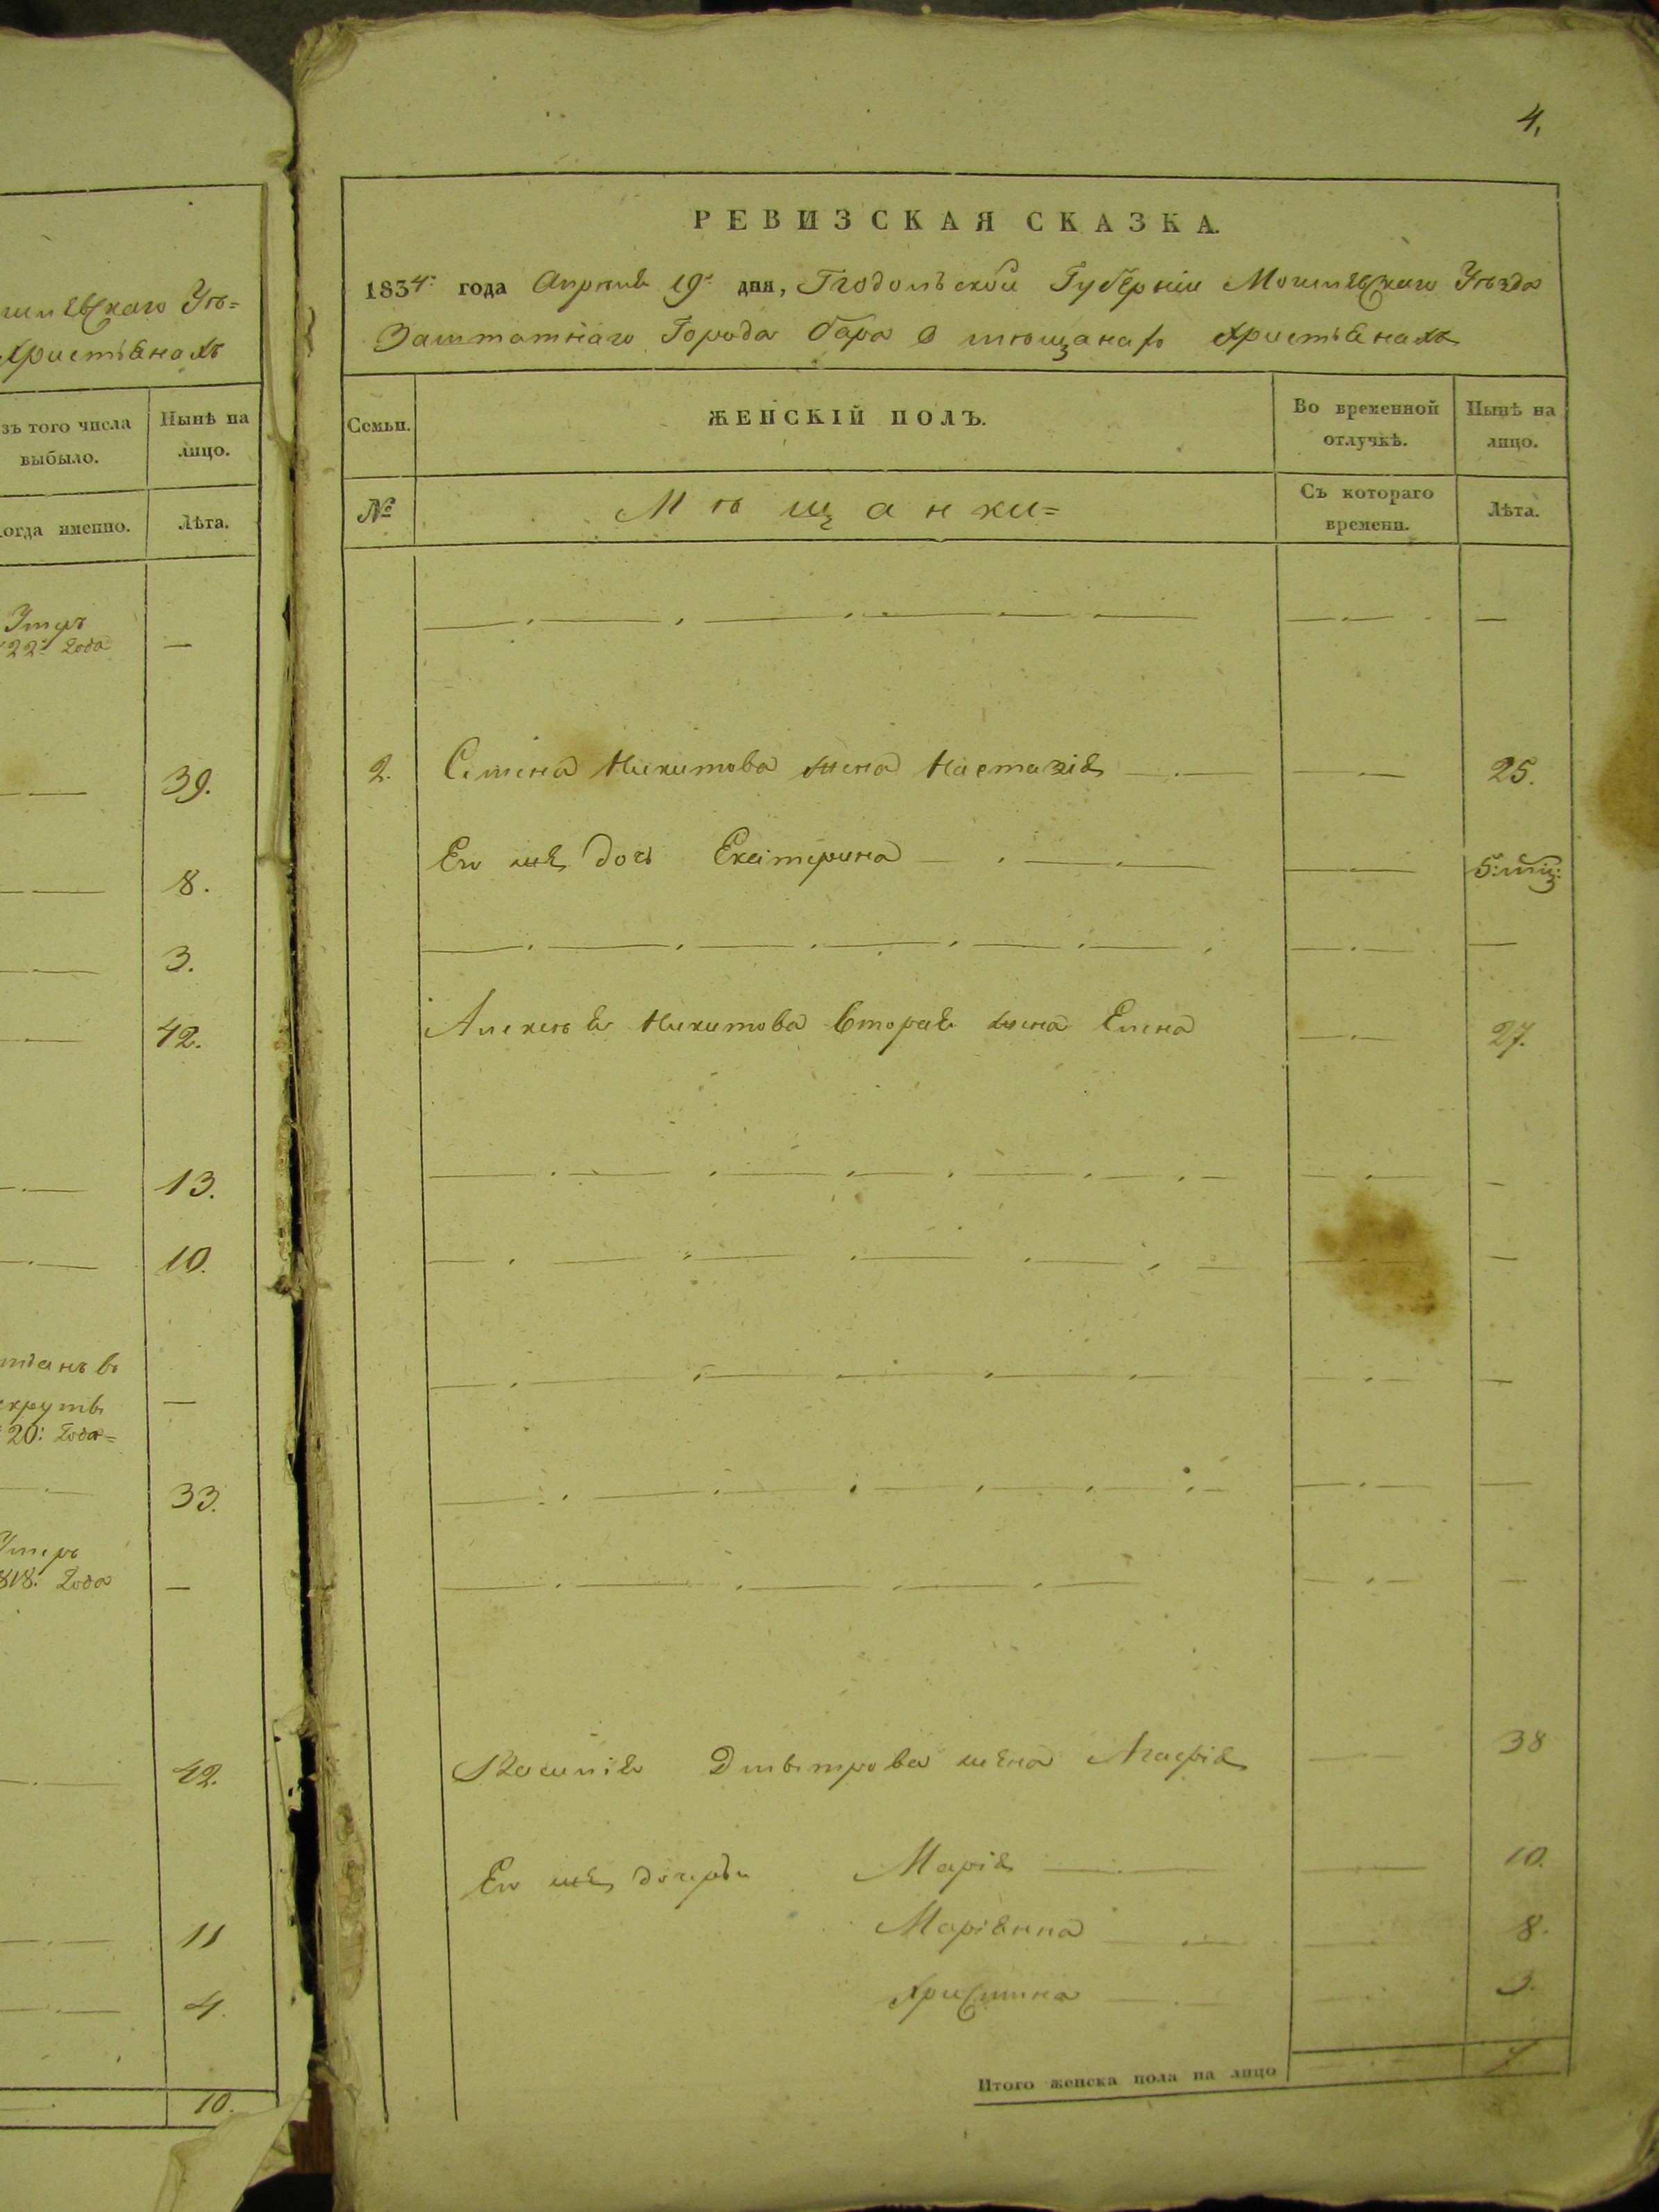 шлѣвскаго Уѣ=
Христіянахъ
зъ того числа
выбыло.
Нынѣ на
лицо.
огда именно.
Лѣта.
Умеръ
22: Года
—
39.
8.
3.
42.
13.
10.
20: Года=
—
33.
Умеръ
818: Года
—
42.
11
4.
10.
4,
РЕВИЗСКАЯ СКАЗКА.
1834: года Апрѣля 19: дня, Подольской Губерніи Могилевскаго Уѣзда
Заштатнаго Города Бара о мѣщанахъ Христіянахъ
Семьи.
ЖЕНСКІЙ ПОЛЪ.
Во временной
отлучкѣ.
Нынѣ на
лицо.
№
Мѣщанки=
Съ котораго
времени.
Лѣта.
2. Семена Никитова жена Настазія 25.
Его же дочь Екатерина 5: мѣц:
Алексѣя Никитова вторая жена Елена 27.
Василія Дмытрова жена Агафія 38
Его же дочеры Марія 10.
Маріянна 8.
Христина 3.
Итого женска пола на лицо 7